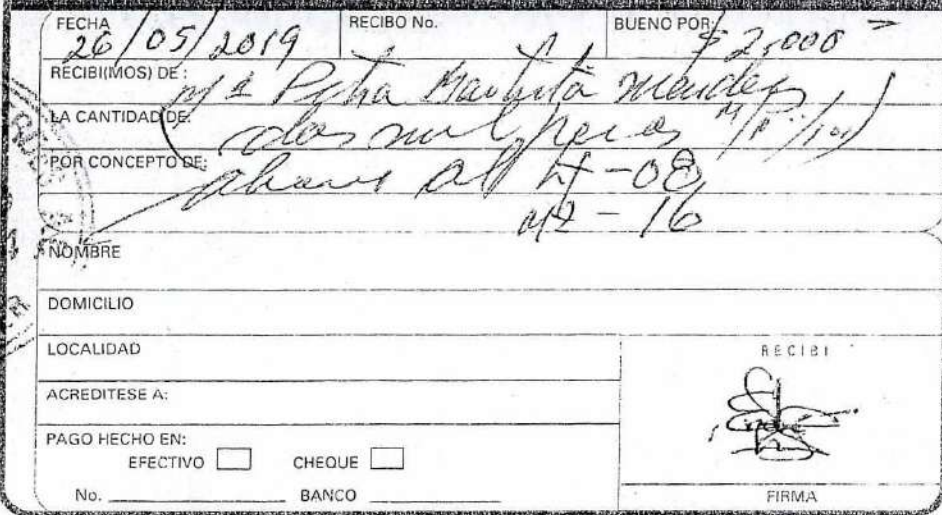 FECHA RECIBO No. BUENO POR:
26/05/2019 $2,000
RECIBI(MOS) DE: Ma Petra Bautista Mendez
LA CANTIDAD DE: (dos mil pesos M/
POR CONCEPTO DE: abono al Lt-08
Mz-16
NOMBRE
DOMICILIO
LOCALIDAD
ACREDITESE A:
PAGO HECHO EN:
EFECTIVO CHEQUE
No. BANCO
RECIBI
FIRMA